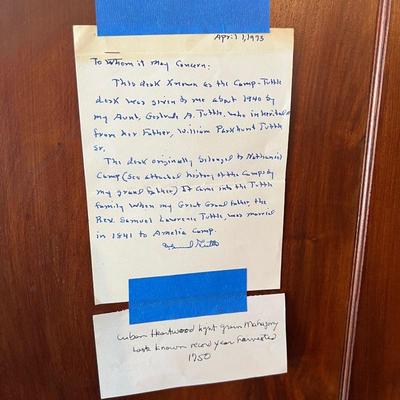 April 1, 1973
To Whom it May Concern:
This desk known as the Camp-Tuttle
desk was given to me about 1940 by
my Aunt, Gertrude A. Tuttle, who inherited
from her Father, William Parkhurst Tuttle
Sr.
The desk originally belonged to Nathaniel
Camp (see attached history of the Camps by
my grand father) It came into the Tuttle
family when my Great Grand father, the
Rev. Samuel Lawrence Tuttle, was married
in 1841 to Amelia Camp.
Tuttle
Cuban Heartwood light grain Mahogany
last known record year harvested
1750